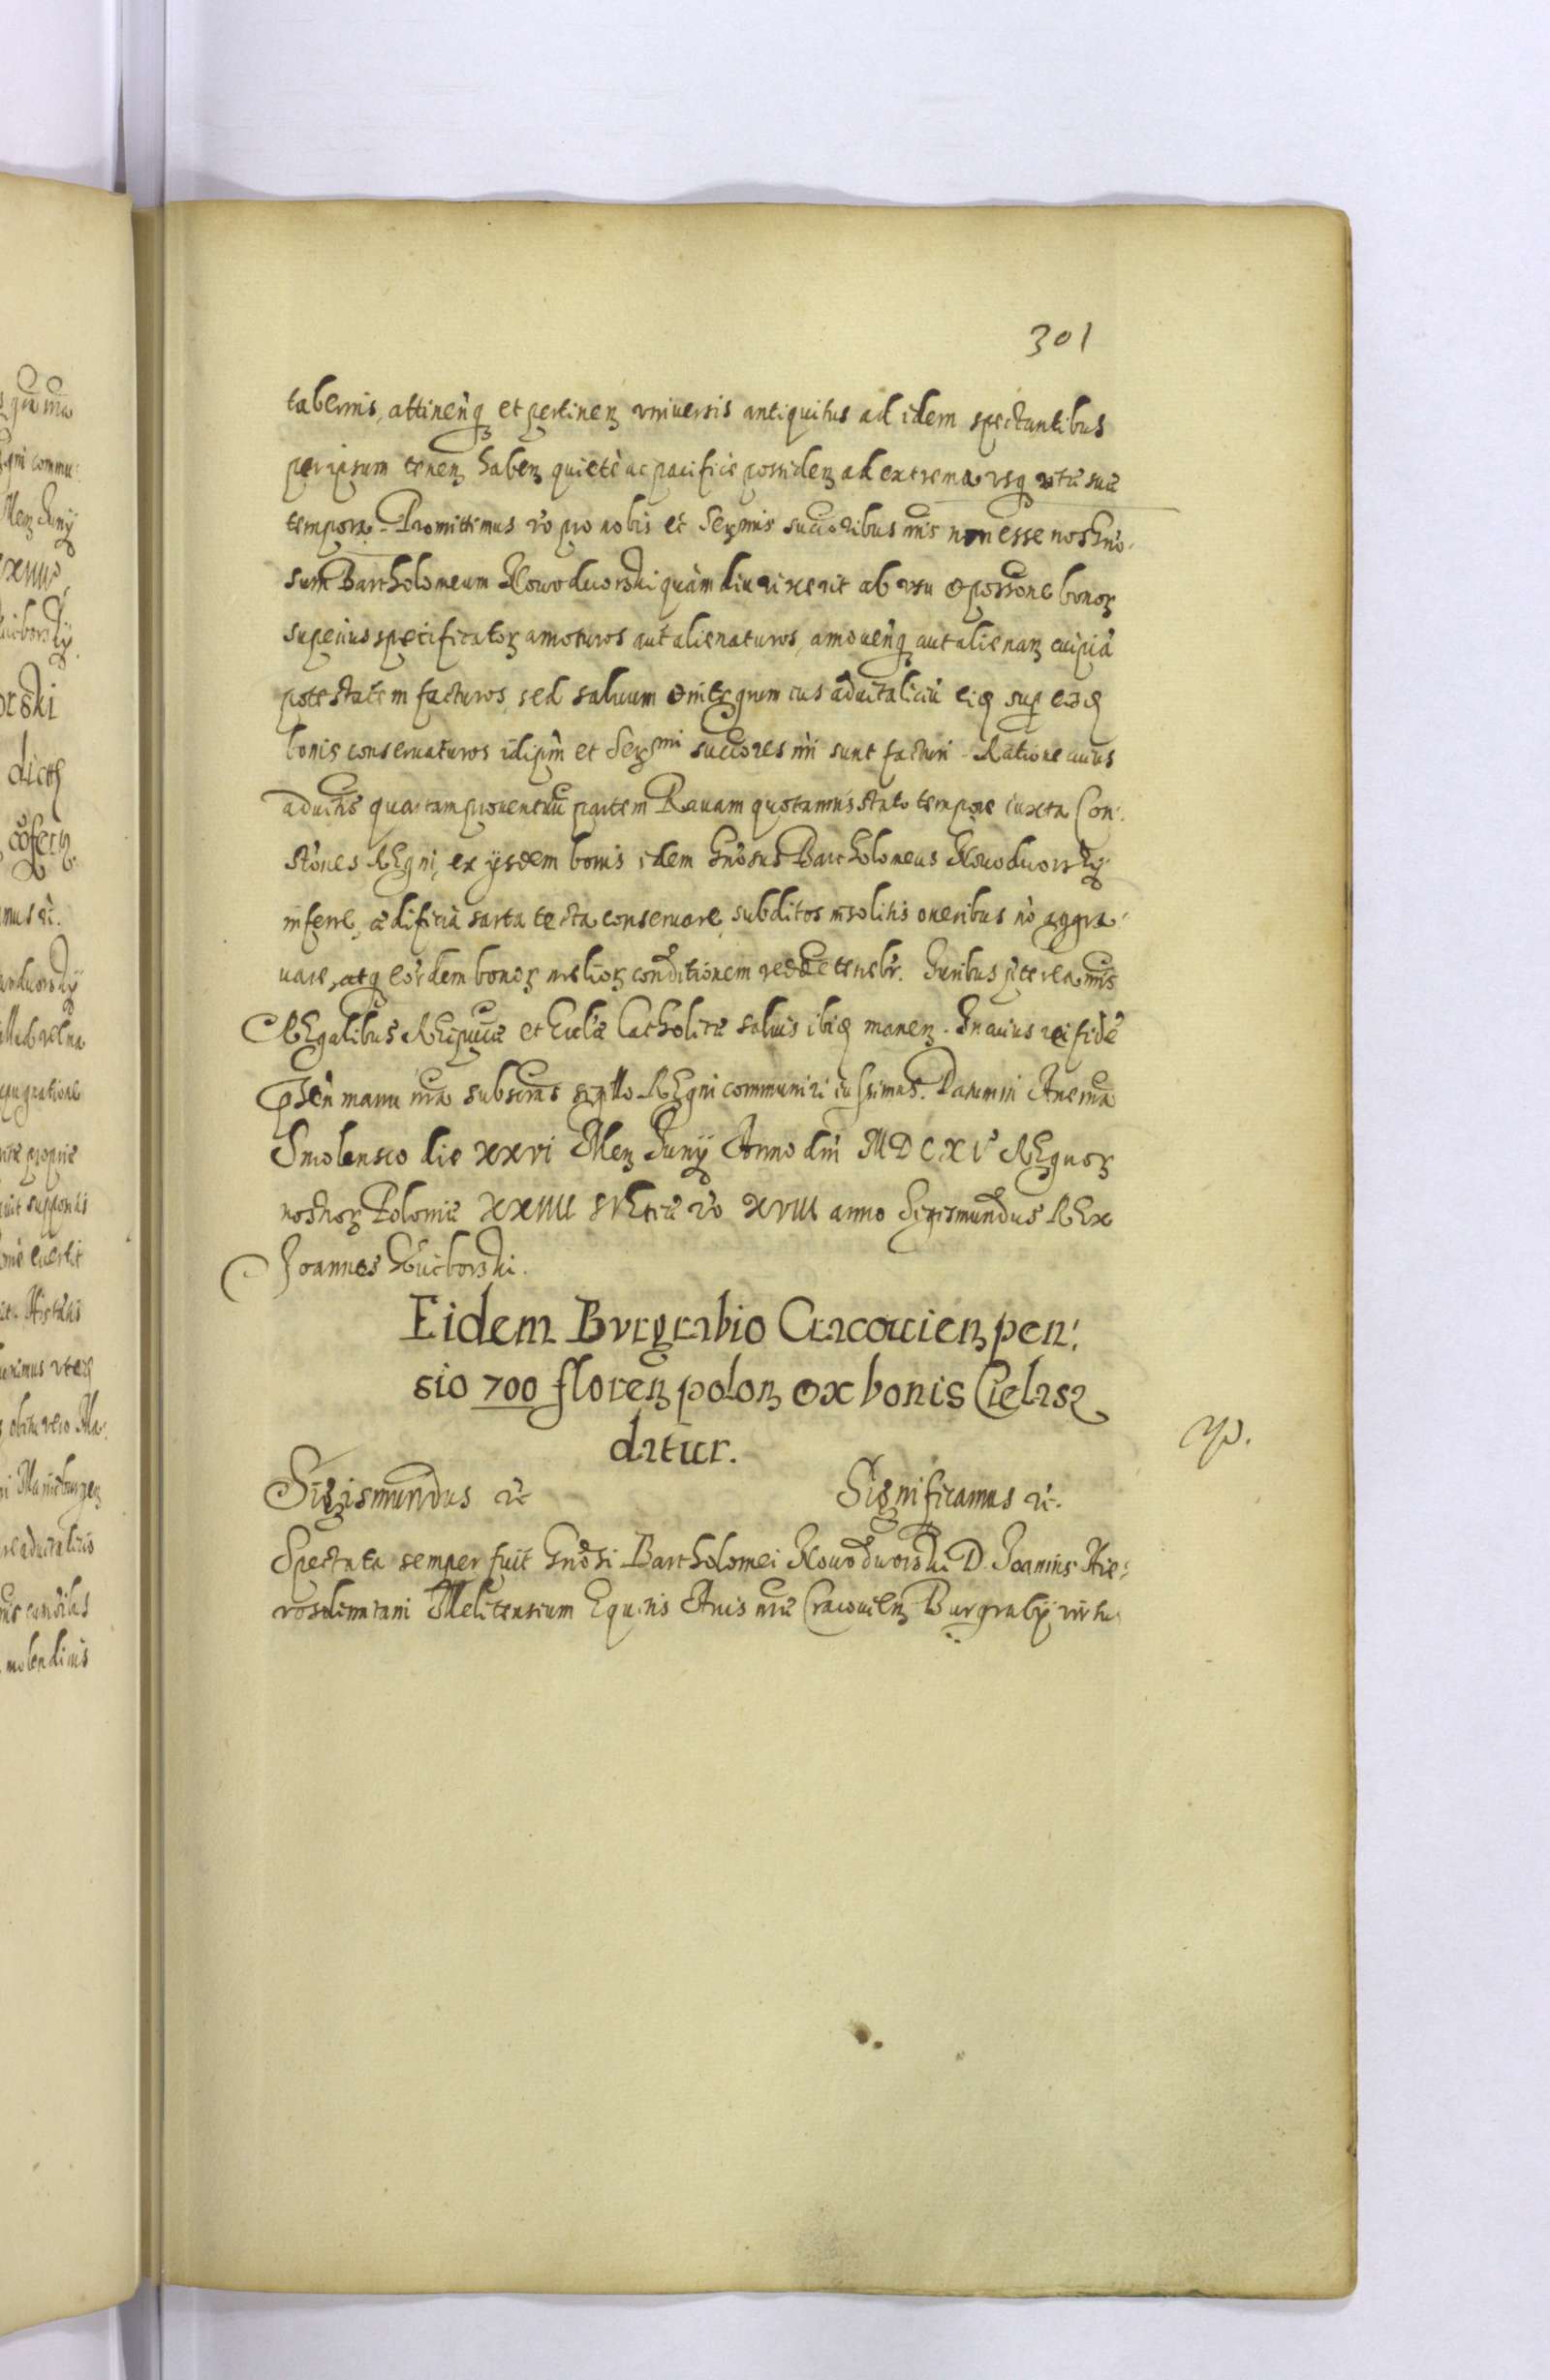 301
tabernis, attinen'q et pertinen universis antiquitus ad idem spectantibus
per ipsum tenen haben quietè ac pacificè possiden ad extrema usq vitæ suæ
tempora. Promittimus v'o pro nobis et Sermis succoribus nris non esse nos Gnò-
sum Bartholomeum Nowodworski quàm diu vixerit ab usu & possone bonoꝝ
superius specificatoꝝ amoturos aut alienaturos, amoven'q aut alienan cuipiá
potestatem facturos, sed salvum & integrum ius advitaliciū eiꝗ sup eisdꝗ
bonis conservaturos idipm̄ et Sermi succores nri sunt facturi. Ratione cuius
advitatis quartam proventuū partem Ravam quotannis stato tempore iuxta Con:
st'ones REgni, ex ijsdem bonis idem Gnosus Bartholomeus Nowodworsky
inferre, ædificia sarta tecta conservare, subditos insolitis oneribus nò aggra-
vare, atq eor'dem bonoꝝ melioꝝ conditionem reddè tenebr. Iuribus p'terea nris
REgalibus REipucæ et Eccl'æ Catholicæ salvis ibiꝗ manen. In cuius rei fidé
p'sen manu nra subscras sigillo REgni communiri iussimus. Datum in Arce nra
Smolensco die XXVI Men Iunij Anno dni MDCXIV REgnoꝝ
nostroꝝ Poloniæ XXVII SvEtiæ v'o XVIII anno Sigismundus REx
Joannes Kuczborski.
Eidem Burgrabio Cracovien pen:
sio 700 floren polon ex bonis Cielasz
datur.
Sigismundus &c Significamus &c.
Spectata semper fuit Gnosi Bartholomei Nowodworski D. Joannis Hie:
rosolimitani Melitensium Equitis Arcis nræ Cracovien Burgrabij virtus